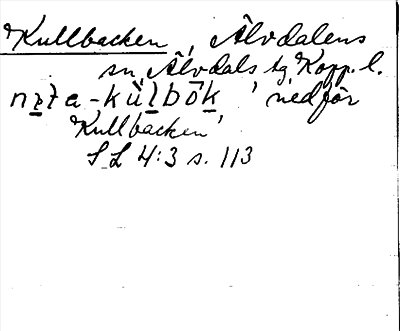 Kullbacken, Älvdalens
sn, Älvdals tg, Kopp. l.
kùlbôk, nedför
Kullbacken,
S L 4:3 s. 113